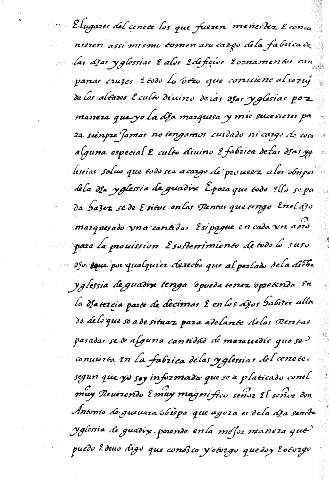 E lugares del cenete los que fueren menester E conui
nieren assi mismo tomen a su cargo de la fabrica de
las dhas yglesias E a los Edificios E ornamentos cam
panas cruzes E todo lo otro que conviene al serui
de los altares E culto divino de las dhas yglesias por
manera que yo la dha marquesa y mis sucesores pa
ra sienpre Jamas no tengamos cuidado ni cargo de cosa
alguna especial E culto divino E fabrica de las dhas yg
lesias salvo que todo sea a cargo de proveer a los obispos
de la dha yglesia de guadix E para que todo Ello se pue
da hazer se de E situe en las Rentas que tengo En el dho
marquesado una cantidad E se pague en cada un año
para la provission E sostenimiento de todo lo suso
dho por qualquier derecho que al perlado de la dicha
yglesia de guadix tenga o pueda tener o pretenda en
la dha tercia parte de decimas E en los dhos habices alle
de lo que se a de situar para adelante de las Rentas
pasadas se de alguna cantidad de maravedis que se
convierta En la fabrica de las yglesias del cenete
segun que yo soy informada que se a platicado con el
muy Reverendo E muy magnifico señor El señor don
Antonio de guevara obispo que agora es de la dha sancta
yglesia de guadix porende en la mejor manera que
puedo E devo digo que conozco y otorgo que doy E otorgo